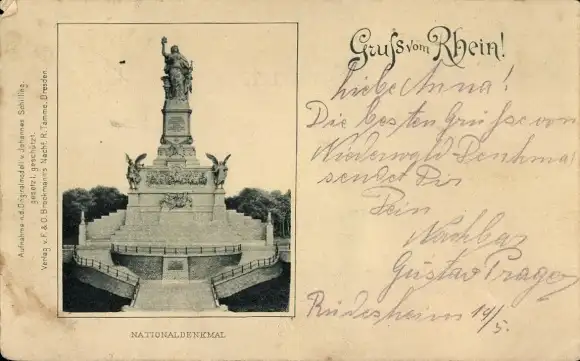 Gruss vom Rhein!
Liebe Anna!
Die besten Grüsse von
Niederwald Denkmal
sendet Dir
Dein
Nachbar
Gustav Prager
Rüdesheim 19/5.
NATIONALDENKMAL
Aufnahme n.d. Originalmodell v. Johannes Schilling.
gesetzl. geschützt.
Verlag v. F. & O. Brockmanns Nachf. R. Tamme, Dresden.